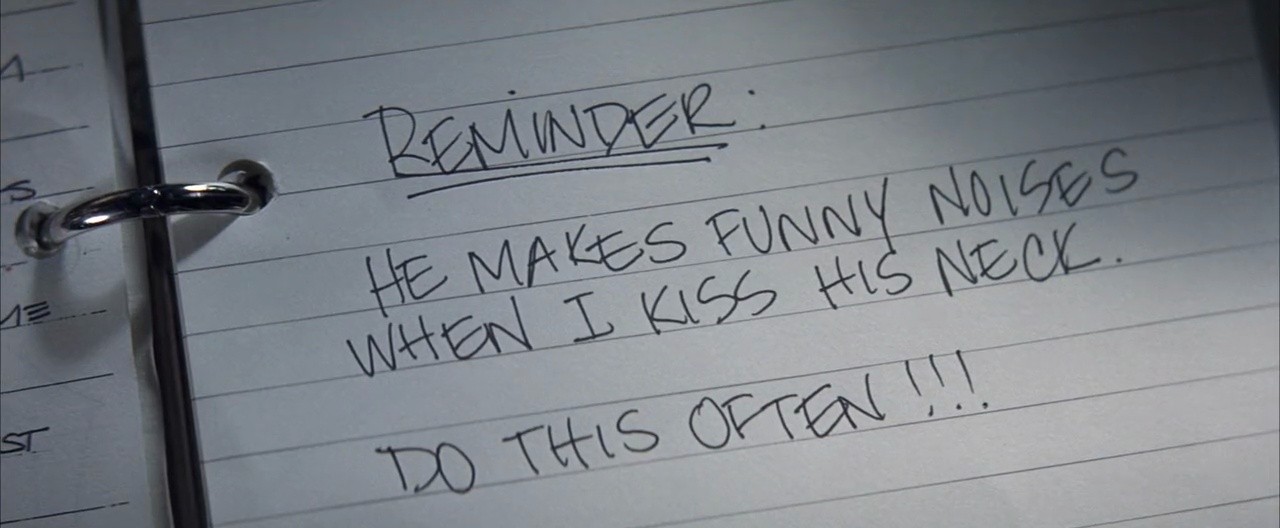 A
S
ME
ST
REMINDER:
HE MAKES FUNNY NOISES
WHEN I KISS HIS NECK.
DO THIS OFTEN!!!